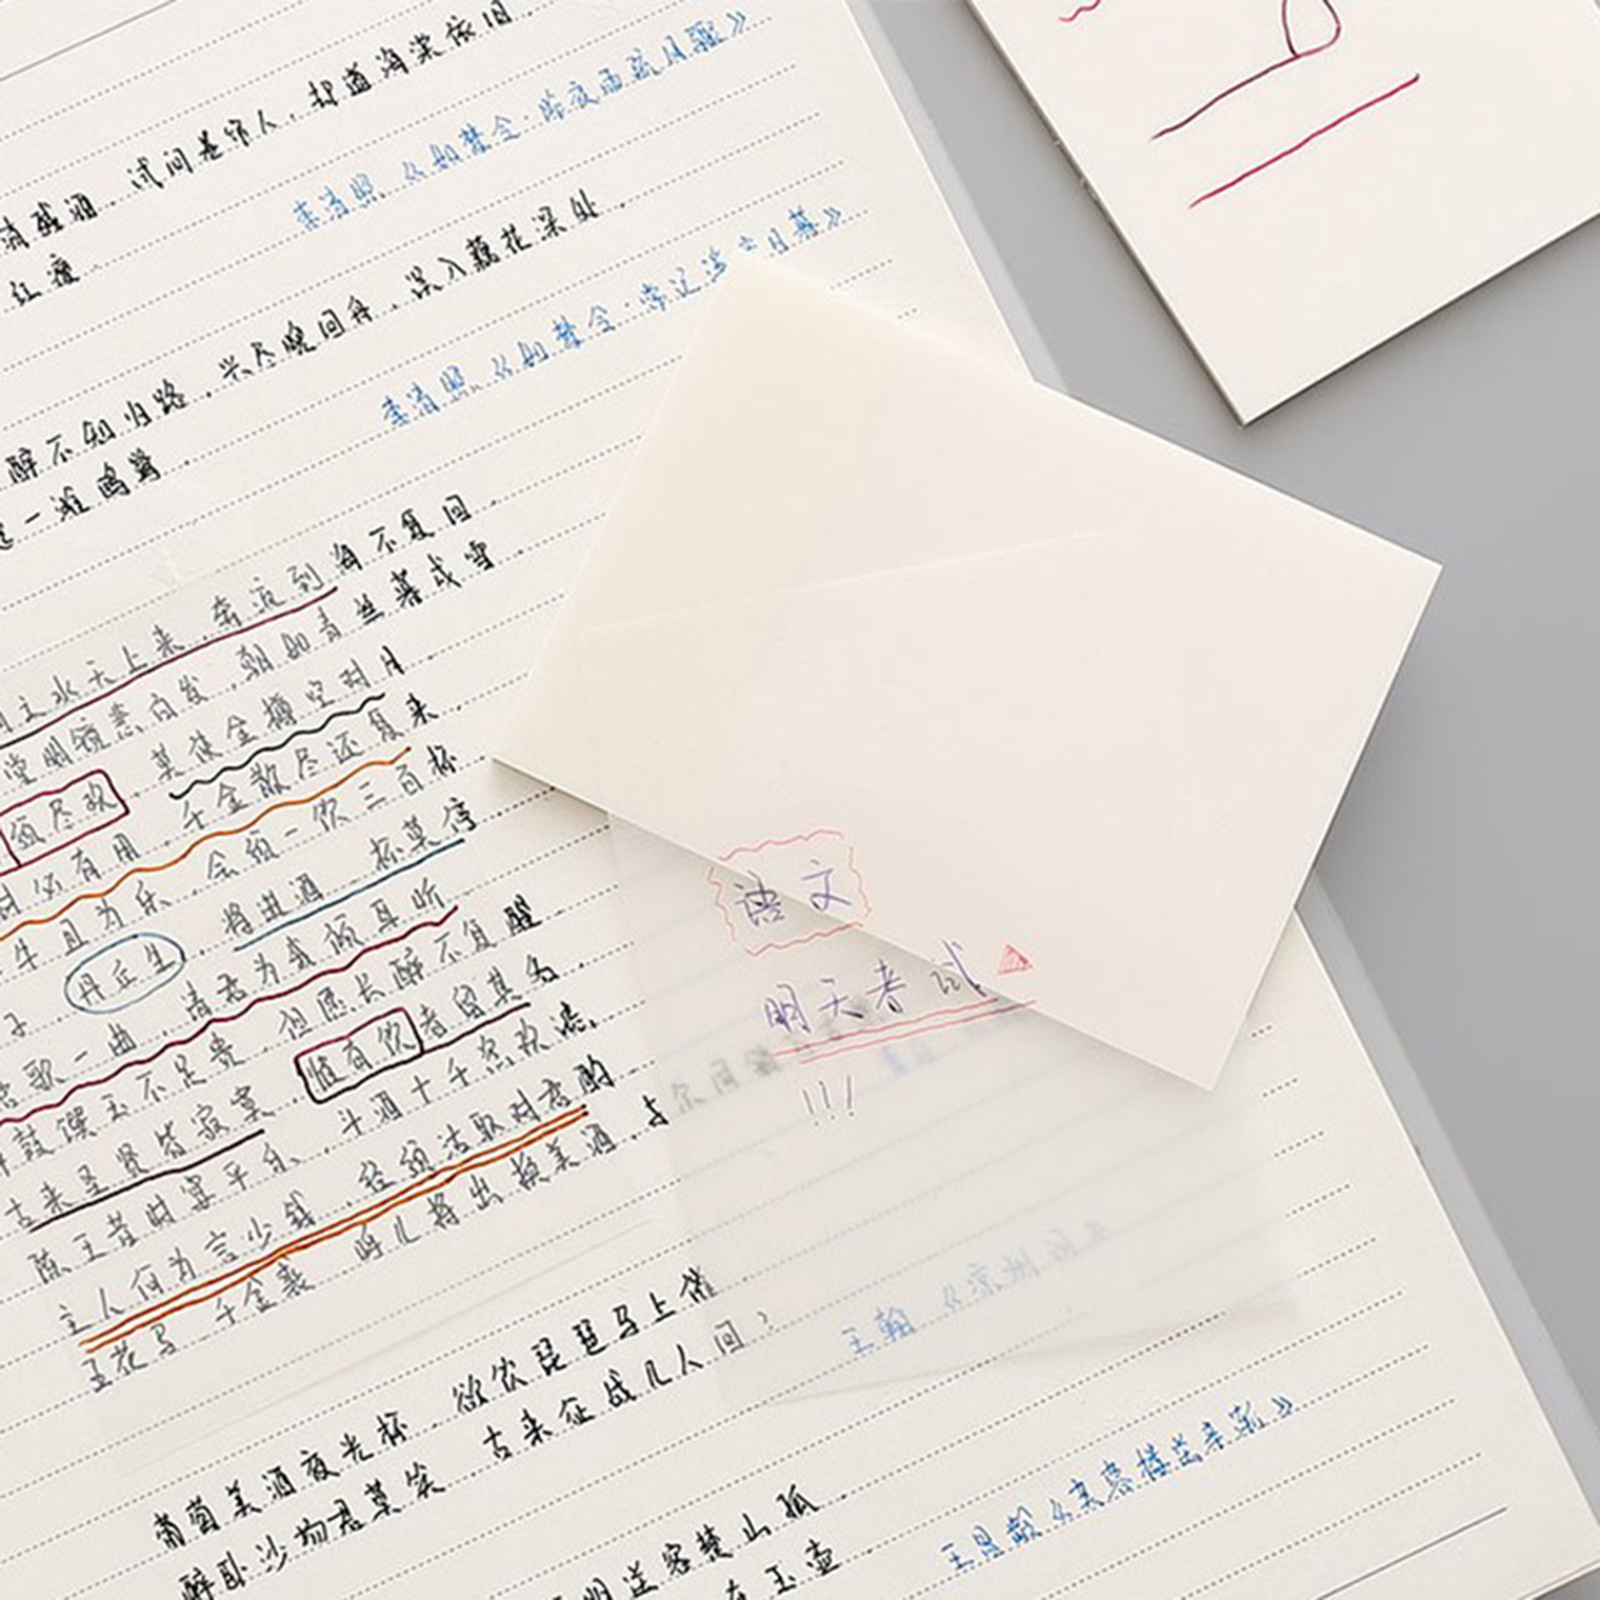 消残酒.试问卷帘人.却道海棠依旧.
红瘦.
李清照《如梦令·昨夜雨疏风骤》
醉不知归路.兴尽晚回舟.误入藕花深处.
一滩鸥鹭.
李清照《如梦令·常记溪亭日暮》
之水天上来.奔流到海不复回.
堂明镜悲白发.朝如青丝暮成雪.
须尽欢.莫使金樽空对月.
材必有用.千金散尽还复来.
牛且为乐.会须一饮三百杯.
子.丹丘生.将进酒.杯莫停
歌一曲.请君为我倾耳听
鼓馔玉不足贵.但愿长醉不复醒
古来圣贤皆寂寞.惟有饮者留其名.
陈王昔时宴平乐.斗酒十千恣欢谑.
主人何为言少钱.径须沽取对君酌.
五花马.千金裘.呼儿将出换美酒.与尔同销
语文
明天考试
!!!
葡萄美酒夜光杯.欲饮琵琶马上催
醉卧沙场君莫笑.古来征战几人回?
王翰《凉州词》
明送客楚山孤.
在玉壶.
王昌龄《芙蓉楼送辛渐》